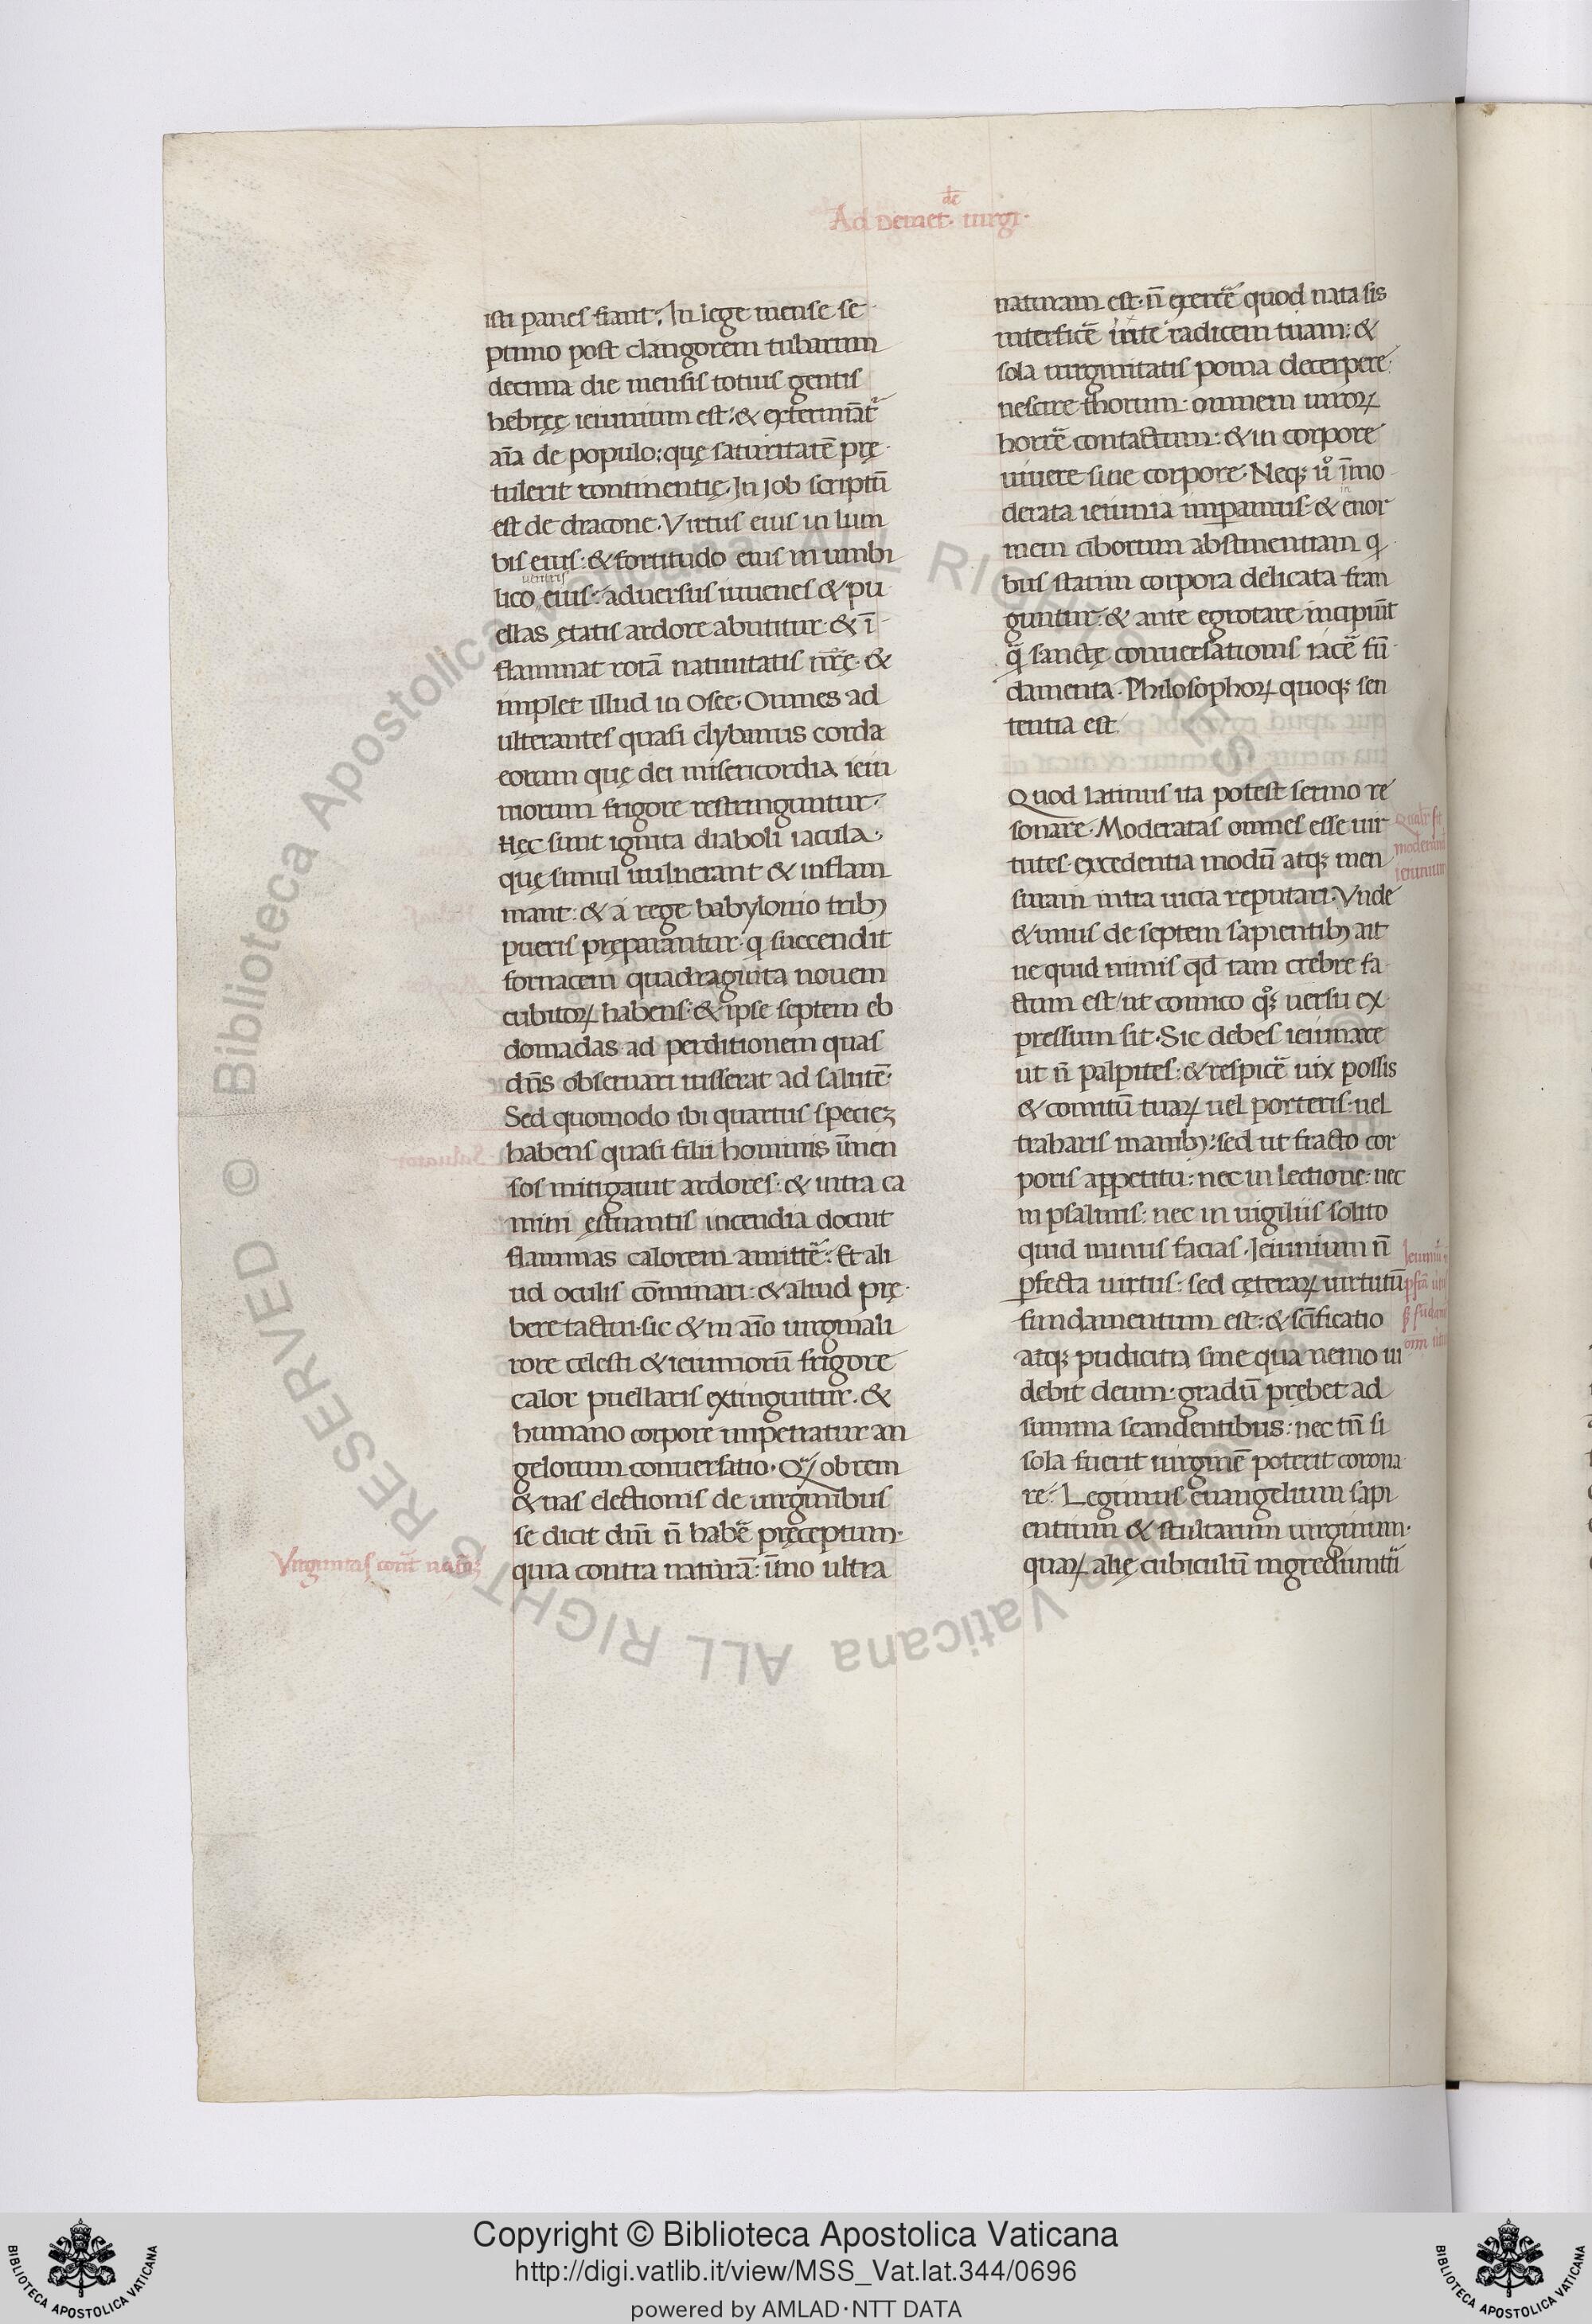 Ad Demet.de uirgi.
isti panes fiant; In lege mense se
ptimo post clangorem tubarum
decima die mensis totius gentis
hebręę ieiunium est: & extermı̄at᷑
aīa de populo: quę saturitatē prę
tulerit continentię. In Job scriptū
est de dracone. Virtus eius in lum
bis eius: & fortitudo eius in umbi
uentris
lico eius: aduersus iuuenes & pu
ellas ętatis ardore abutitur & ī
flammat rotā natiuitatis nr̄ę. &
implet illud in Osee. Omnes ad
ulterantes quasi clybanus corda
eorum quę dei misericordia ieiu
niorum frigore restringuntur.
Hęc sunt ignita diaboli iacula.
quę simul uulnerant & inflam
mant: & a rege babylonio trib;
pueris pręparantur. q̄ succendit
fornacem quadraginta nouem
cubitoꝝ habens. & ipse septem eb
domadas ad perditionem quas
dn̄s obseruari iusserat ad salutē.
Sed quomodo ibi quartus speciez
habens quasi filii hominis īmen
sos mitigauit ardores: & intra ca
mini ęstuantis incendia docuit
flammas calorem amittē: Et ali
ud oculis com̄inari: & aliud prę
bere tactui. sic & in aīo uirginali
rore celesti & ieiuniorū frigore
calor puellaris extinguitur. &
humano corpore impetratur an
gelorum conuersatio. Qꝫ obrem
& uas electionis de uirginibus
se dicit dn̄i n̄ habē pręceptum.
quia contra naturā: īmo ultra
Virginitas cont̄ natā;
naturam est. n̄ exercē quod nata sis
interficē in te radicem tuam: &
sola uirginitatis poma decerpere.
nescire thorum. omnem uiroꝝ
horrē contactum: & in corpore
uiuere sine corpore. Neqꝫ ů īmo
derata ieiunia imperamus. & enor
mem ciborum abstinentiam q̄
bus statim corpora delicata fran
guntur: & ante egrotare incipiūt
q̄ sanctę conuersationis iacē fū
damenta. Philosophoꝝ quoqꝫ sen
tentia est
Quod latinus ita potest sermo re
sonare. Moderatas omnes esse uir
tutes. excedentia modū atqꝫ men
suram intra uicia reputari. Vnde
& unus de septem sapientib; ait
ne quid nimis qd tam crebre fa
ctum est/ ut comico q̊ꝫ uersu ex
pressum sit. Sic debes ieiunare
ut n̄ palpites: & respicē uix possis
& comitū tuaꝝ uel porteris. uel
traharis manib;: sed ut fracto cor
poris appetitu: nec in lectione: nec
in psalmis: nec in uigiliis solito
quid minus facias. Ieiunium n̄
ꝑfecta uirtus: sed cęteraꝝ uirtutū
fundamentum est: & sc̄ificatio
atqꝫ pudicitia sine qua nemo ui
debit deum: gradū prębet ad
summa scandentibus: nec tn̄ si
sola fuerit uirginē poterit corona
re: Legimus euangelium sapi
entium & stultarum uirginum.
quaꝝ alię cubiculū ingrediunt᷑
Copyright © Biblioteca Apostolica Vaticana
http://digi.vatlib.it/view/MSS_Vat.lat.344/0696
powered by AMLAD·NTT DATA
BIBLIOTECA APOSTOLICA VATICANA
BIBLIOTECA APOSTOLICA VATICANA
© Biblioteca Apostolica Vaticana ALL RIGHTS RESERVED